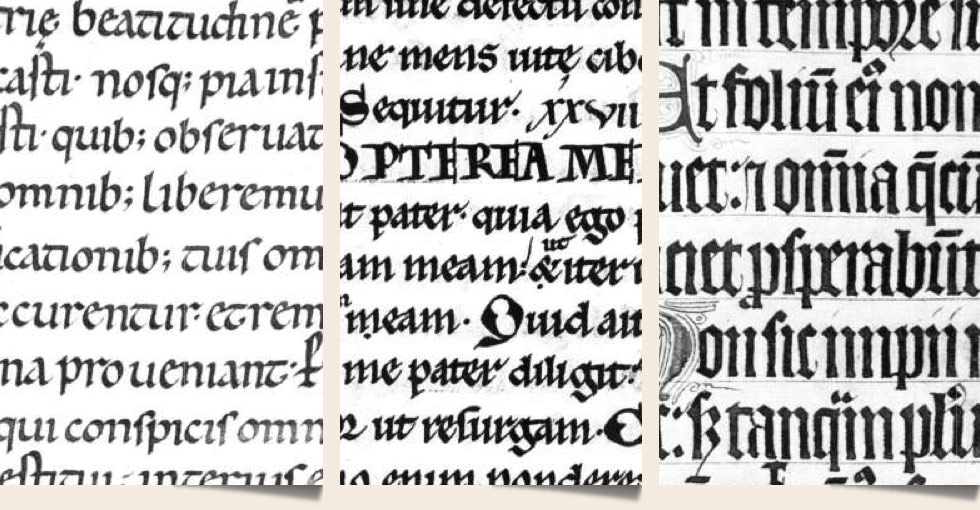 trię beatitudine p
casti· nosq; pia inst
sti· quib; obseruat
omnib; liberemu
icationib; tuis om
ccurentur et rem
na proueniant·
qui conspicis omn
estitui· interius e
ne mens uitę cibo
Sequitur· xxvii
OPTEREA ME
t pater· quia ego p
ut
am meam· & iteru
meam· Quid au
me pater diligit·
ut resurgam· C
enim pondere
t in tempore
Et foliū ei non
uet: ⁊ om̄ia q̄cū
uet psperabūt
Non sic impii
tanq̄m pulu